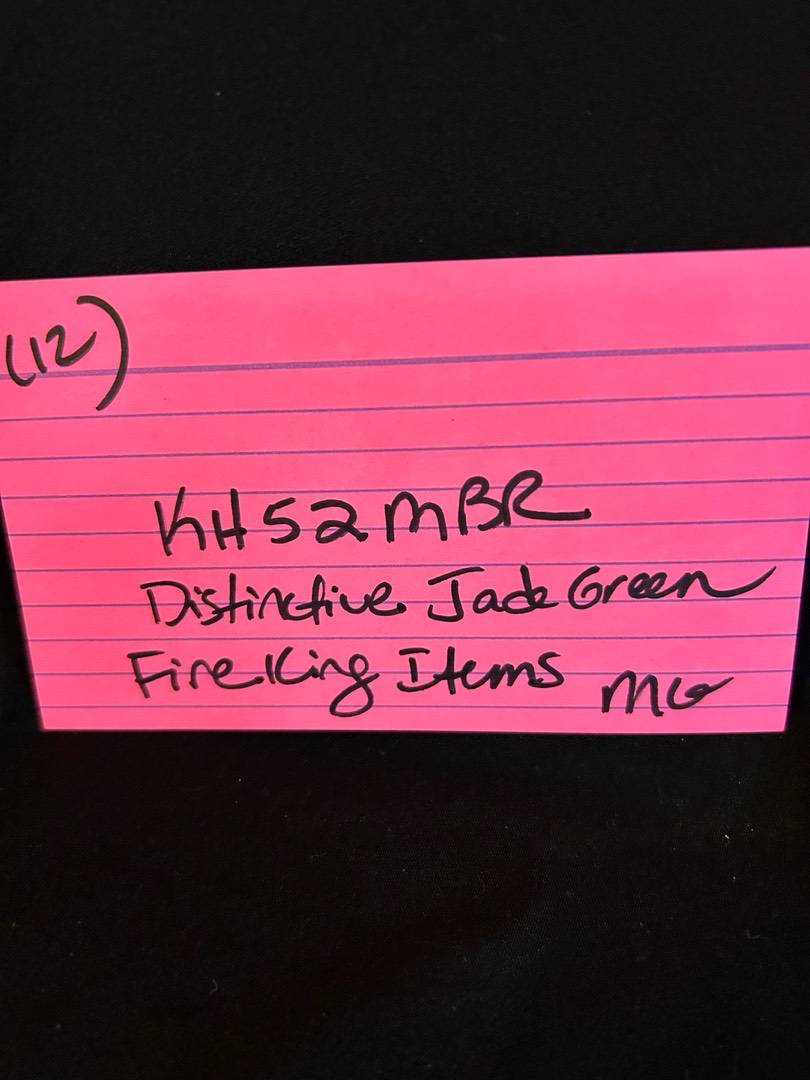 (12)
KH52MBR
Distinctive Jade Green
Fire King Items MG